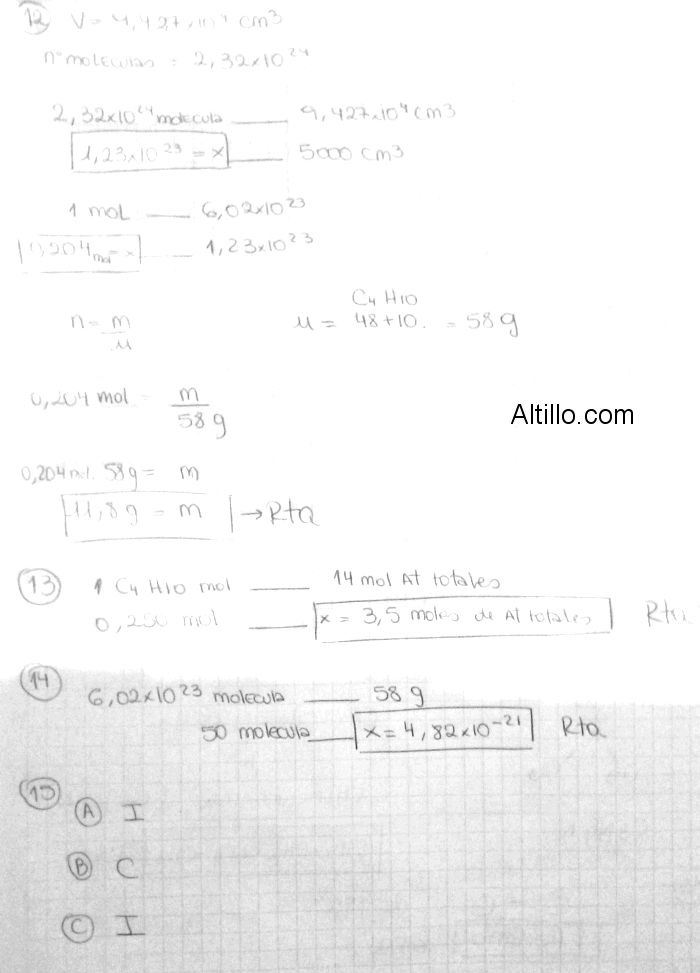 12 V = 9,427x10⁴ cm3
nº moleculas = 2,32x10²⁴
2,32x10²⁴ molecula —— 9,427x10⁴ cm3
1,23x10²³ = x —— 5000 cm3
1 mol —— 6,02x10²³
0,204 mol = x —— 1,23x10²³
C4 H10
n = m/M M = 48+10. = 58g
0,204 mol = m/58g
Altillo.com
0,204 mol. 58g = m
11,8g = m → Rta
13 1 C4 H10 mol —— 14 mol At totales
0,250 mol —— x = 3,5 moles de At totales Rta
14 6,02x10²³ molecula —— 58 g
50 molecula —— x = 4,82x10⁻²¹ Rta
15 A I
B C
C I